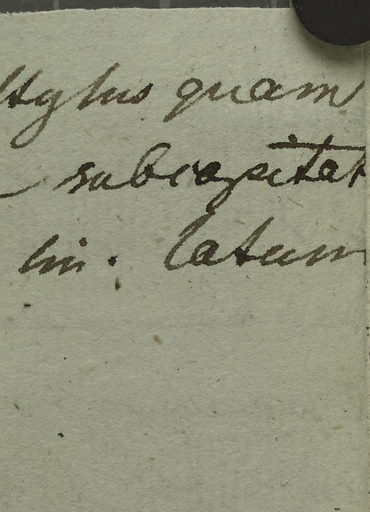 Stylus quam
subcapitat
lin. latum